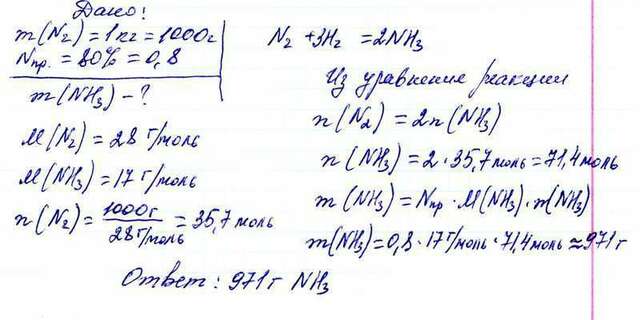 Дано:
m(N₂) = 1кг = 1000г
Nпр. = 80% = 0,8
m(NH₃) - ?
M(N₂) = 28 г/моль
M(NH₃) = 17 г/моль
n(N₂) = 1000г / 28г/моль = 35,7 моль
N₂ + 3H₂ = 2NH₃
Из уравнение реакции
n(N₂) = 2n(NH₃)
n(NH₃) = 2 · 35,7 моль = 71,4 моль
m(NH₃) = Nпр · M(NH₃) · n(NH₃)
m(NH₃) = 0,8 · 17 г/моль · 71,4 моль ≈ 971 г
Ответ: 971 г NH₃